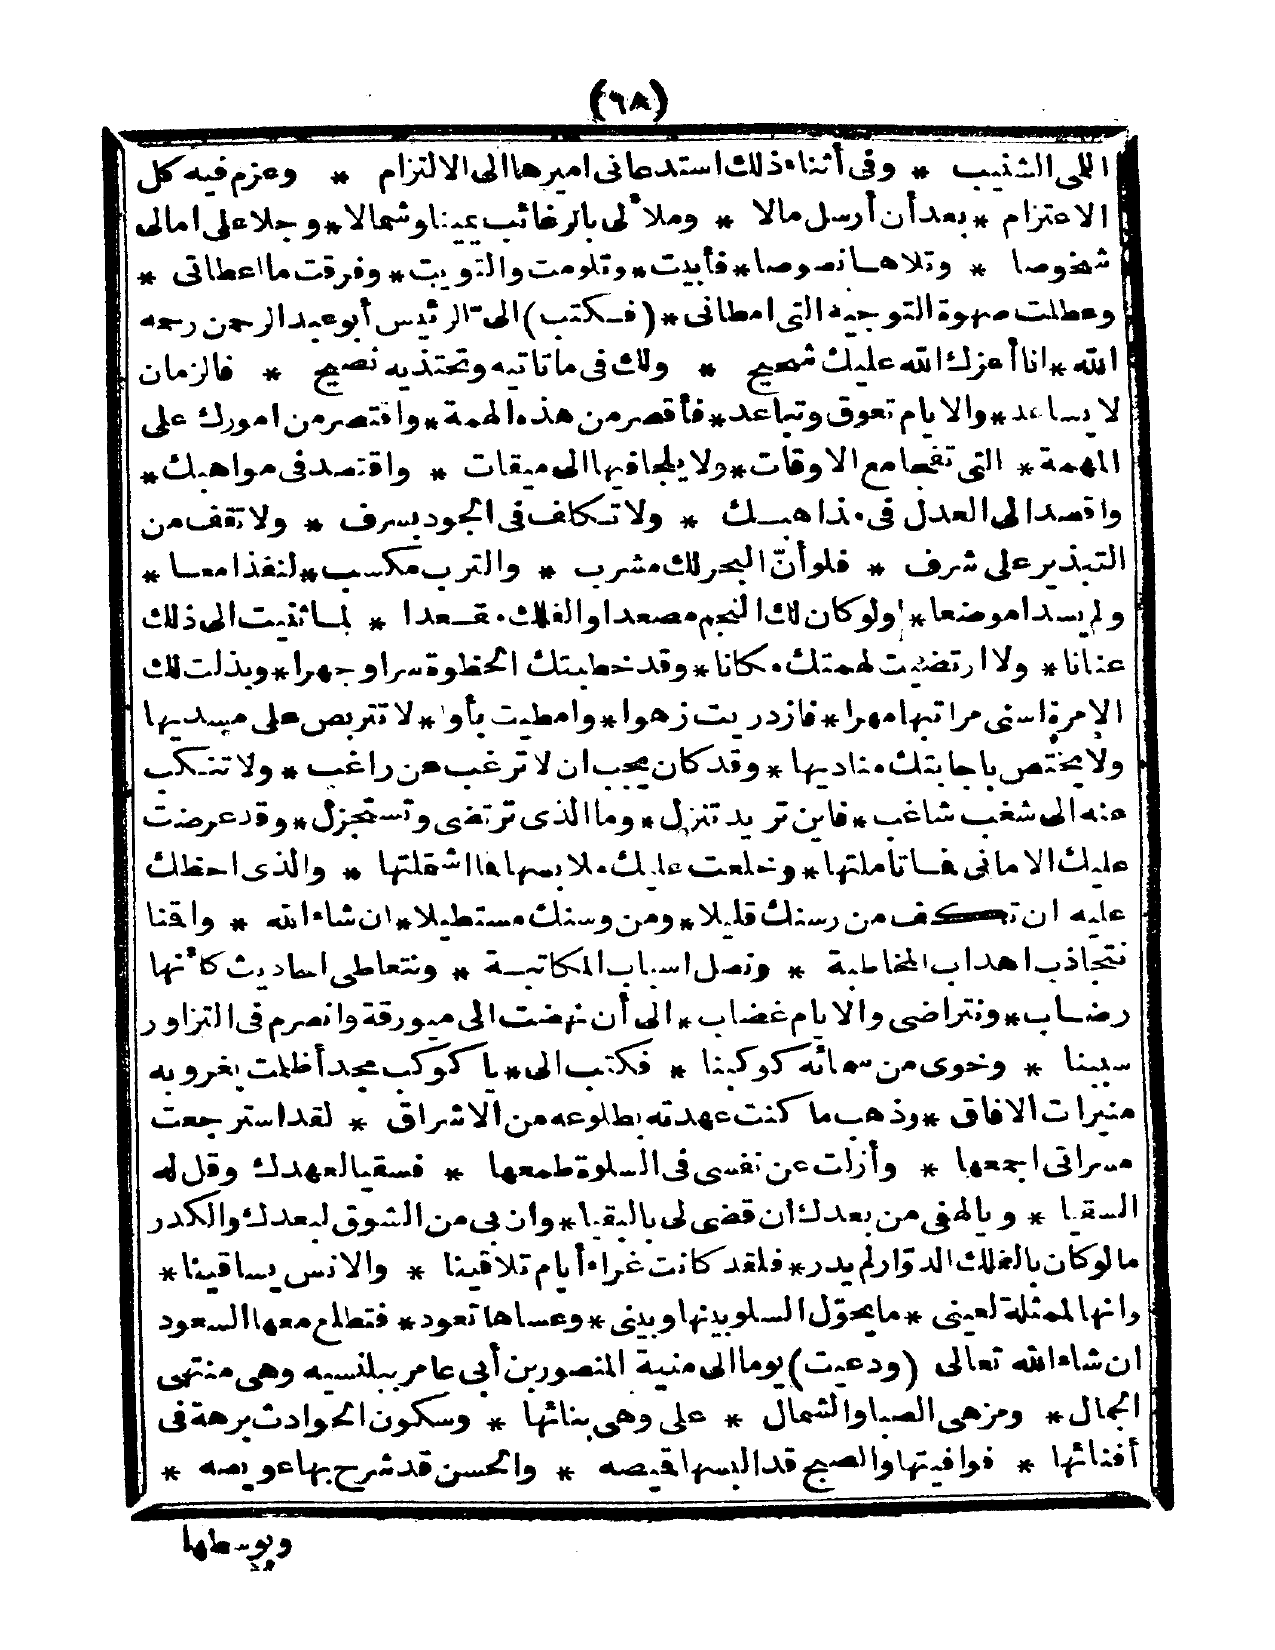 (٦٨)
اللمى الشنيب * وفى أثناء ذلك استدعانى اميرها الى الالتزام * وعزم فيه كل
الاعتزام * بعد أن أرسل مالا * وملأ لى بالرغائب يمينا وشمالا * وجلا على امالى
شخوصا * وتلاها نصوصا * فأبيت * وتلومت والتويت * وفرقت ما اعطانى *
وعطلت صهوة التوجيه التى امطانى * (فكتب) الى الرئيس أبو عبد الرحمن رحمه
الله * انا أعزك الله عليك شحيح * ولك فى ما تاتيه وتحتذيه نصيح * فالزمان
لا يساعد * والايام تعوق وتباعد * فأقصر من هذه الهمة * واقتصر من امورك على
المهمة * التى تفجا مع الاوقات * ولا يلجا فيها الى ميقات * واقتصد فى مواهبك *
واقصد الى العدل فى مذاهبك * ولا تكلف فى الجود بسرف * ولا تقف من
التبذير على شرف * فلو أنّ البحر لك مشرب * والترب مكسب * لنفذا معا *
ولم يسدا موضعا * ولو كان لك النجم مصعدا والفلك مقعدا * لما ثنيت الى ذلك
عنانا * ولا ارتضيت لهمتك مكانا * وقد خطبتك الحظوة سرا وجهرا * وبذلت لك
الإمرة اسنى مراتبها مهرا * فازدريت زهوا * وامطيت بأوا * لا تتربص على مسديها
ولا يختص باجابتك مناديها * وقد كان يجب ان لا ترغب عن راغب * ولا تنكب
عنه الى شغب شاغب * فاين تريد تنزل * وما الذى ترتضى وتستجزل * وقد عرضت
عليك الامانى فما تأملتها * وخلعت عليك ملابسها فما اشتملتها * والذى احظك
عليه ان تكف من رسنك قليلا * ومن وسنك مستطيلا * ان شاء الله * واقنا
نتجاذب اهداب المخاطبة * ونصل اسباب المكاتبة * ونتعاطى احاديث كأنها
رضاب * ونتراضى والايام غضاب * الى أن نهضت الى ميورقة وانصرم فى التزاور
سببنا * وخوى من سمائه كوكبنا * فكتب الى * يا كوكب مجد أظلمت بغروبه
منيرات الافاق * وذهب ما كنت عهدته بطلوعه من الاشراق * لقد استرجعت
مسراتى اجمعها * وأزلت عن نفسى فى السلوة طمعها * فسقيا لعهدك وقل له
السقيا * ويا لهفى من بعدك ان قضى لى بالبقيا * وان بى من الشوق لبعدك والكدر
ما لو كان بالفلك الدوّار لم يدر * فلقد كانت غراء أيام تلاقينا * والانس يساقينا *
وانها لممثلة لعينى * ما يحوّل السلو بينها وبينى * وعساها تعود * فتطلع معها السعود
ان شاء الله تعالى (ودعيت) يوما الى منية المنصور بن أبى عامر ببلنسيه وهى منتهى
الجمال * ومزهى الصبا والشمال * على وهى بنائها * وسكون الحوادث برهة فى
أفنائها * فوافيتها والصبح قد البسها قميصه * والحسن قد شرح بها عويصه *
وبوسطها